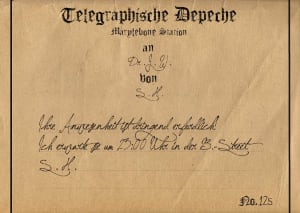 Telegraphische Depeche
Marylebone Station
an
Dr. J. W.
von
S. H.
Ihre Anwesenheit ist dringend erforderlich
Ich erwarte Sie um 23:00 Uhr in der B.-Street
S. H.
No. 12s